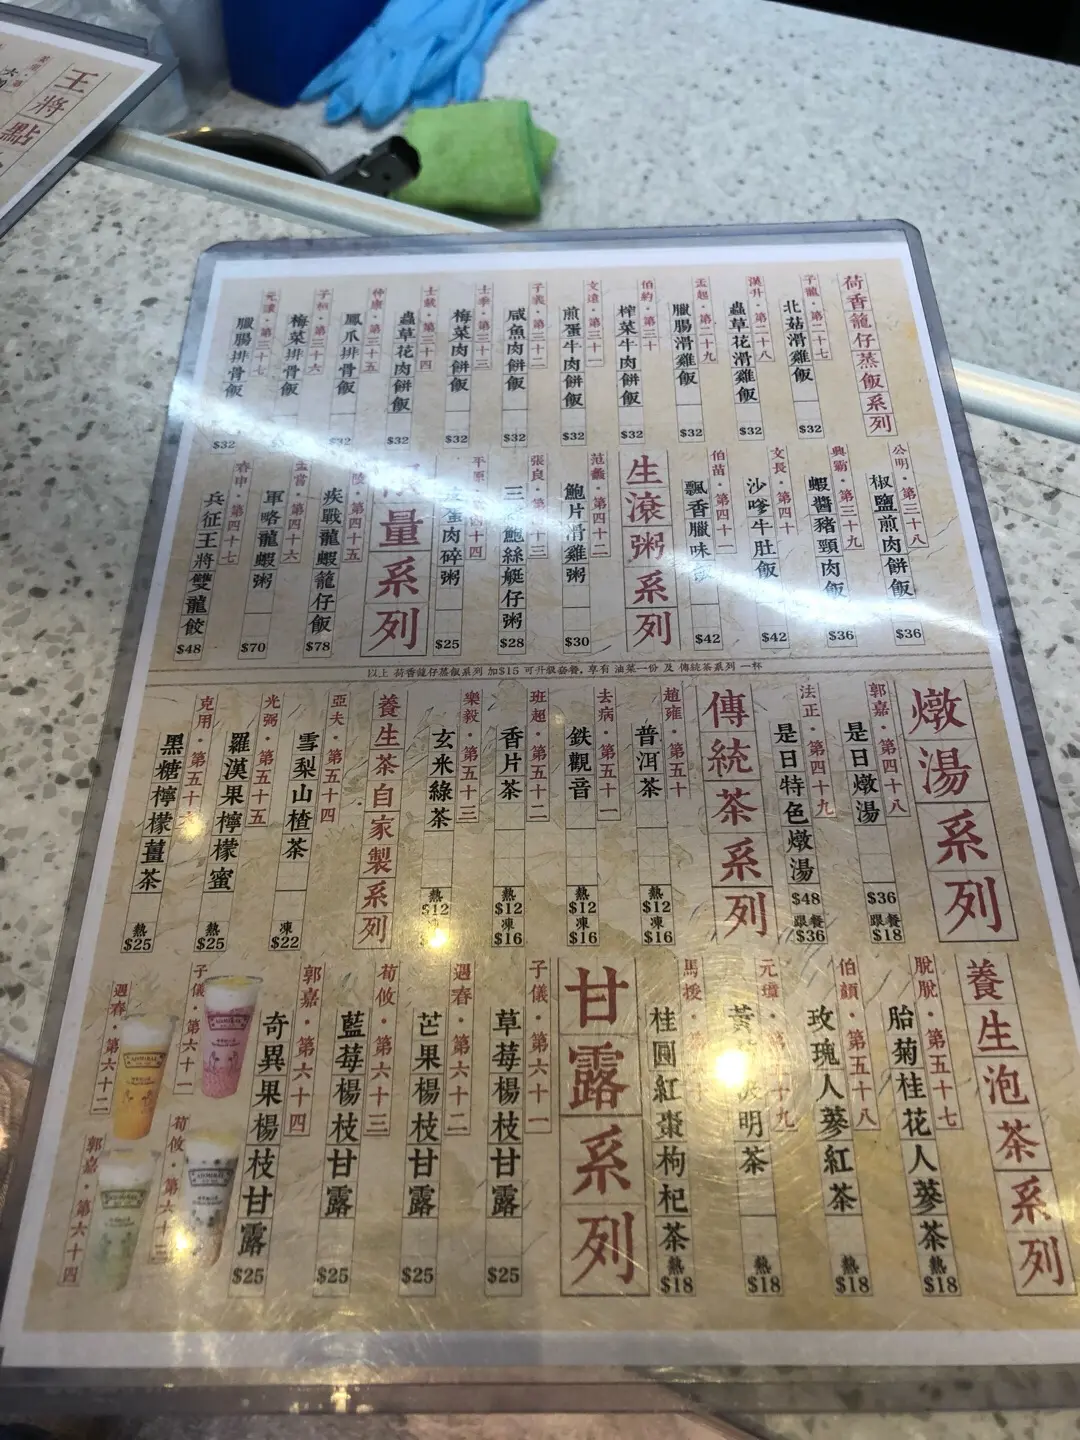 王將點
荷香龍仔蒸飯系列
子龍・第二十七
北菇滑雞飯
$32
漢升・第二十八
蟲草花滑雞飯
$32
孟起・第二十九
臘腸滑雞飯
$32
伯約・第三十
榨菜牛肉餅飯
$32
文遠・第三十一
煎蛋牛肉餅飯
$32
子義・第三十二
咸魚肉餅飯
$32
士季・第三十三
梅菜肉餅飯
$32
士載・第三十四
蟲草花肉餅飯
$32
仲康・第三十五
鳳爪排骨飯
$32
子桓・第三十六
梅菜排骨飯
元讓・第三十七
臘腸排骨飯
$32
公明・第三十八
椒鹽煎肉餅飯
$36
興霸・第三十九
蝦醬豬頸肉飯
$36
文長・第四十
沙嗲牛肚飯
$42
伯苗・第四十一
飄香臘味飯
$42
生滾粥系列
范蠡・第四十二
鮑片滑雞粥
$30
張良・第四十三
三 鮑絲艇仔粥
$28
平原・第四十四
蛋肉碎粥
$25
量系列
第四十五
疾戰龍蝦龍仔飯
$78
孟嘗・第四十六
軍略龍蝦粥
$70
春申・第四十七
兵征王將雙龍餃
$48
以上 荷香龍仔蒸飯系列 加$15 可升級套餐, 享有 油菜一份 及 傳統茶系列 一杯
燉湯系列
郭嘉・第四十八
是日燉湯
$36
跟餐
$18
法正・第四十九
是日特色燉湯
$48
跟餐
$36
傳統茶系列
趙雍・第五十
普洱茶
熱
$12
凍
$16
去病・第五十一
鉄觀音
熱
$12
凍
$16
班超・第五十二
香片茶
熱
$12
凍
$16
樂毅・第五十三
玄米綠茶
熱
$12
養生茶自家製系列
亞夫・第五十四
雪梨山楂茶
凍
$22
光弼・第五十五
羅漢果檸檬蜜
熱
$25
克用・第五十六
黑糖檸檬薑茶
熱
$25
養生泡茶系列
脫脫・第五十七
胎菊桂花人蔘茶
熱
$18
伯顏・第五十八
玫瑰人蔘紅茶
熱
$18
元璋・第五十九
明茶
熱
$18
馬援・第
桂圓紅棗枸杞茶
熱
$18
甘露系列
子儀・第六十一
草莓楊枝甘露
$25
遇春・第六十二
芒果楊枝甘露
$25
荀攸・第六十三
藍莓楊枝甘露
$25
郭嘉・第六十四
奇異果楊枝甘露
$25
子儀・第六十一
遇春・第六十二
荀攸・第六十三
郭嘉・第六十四